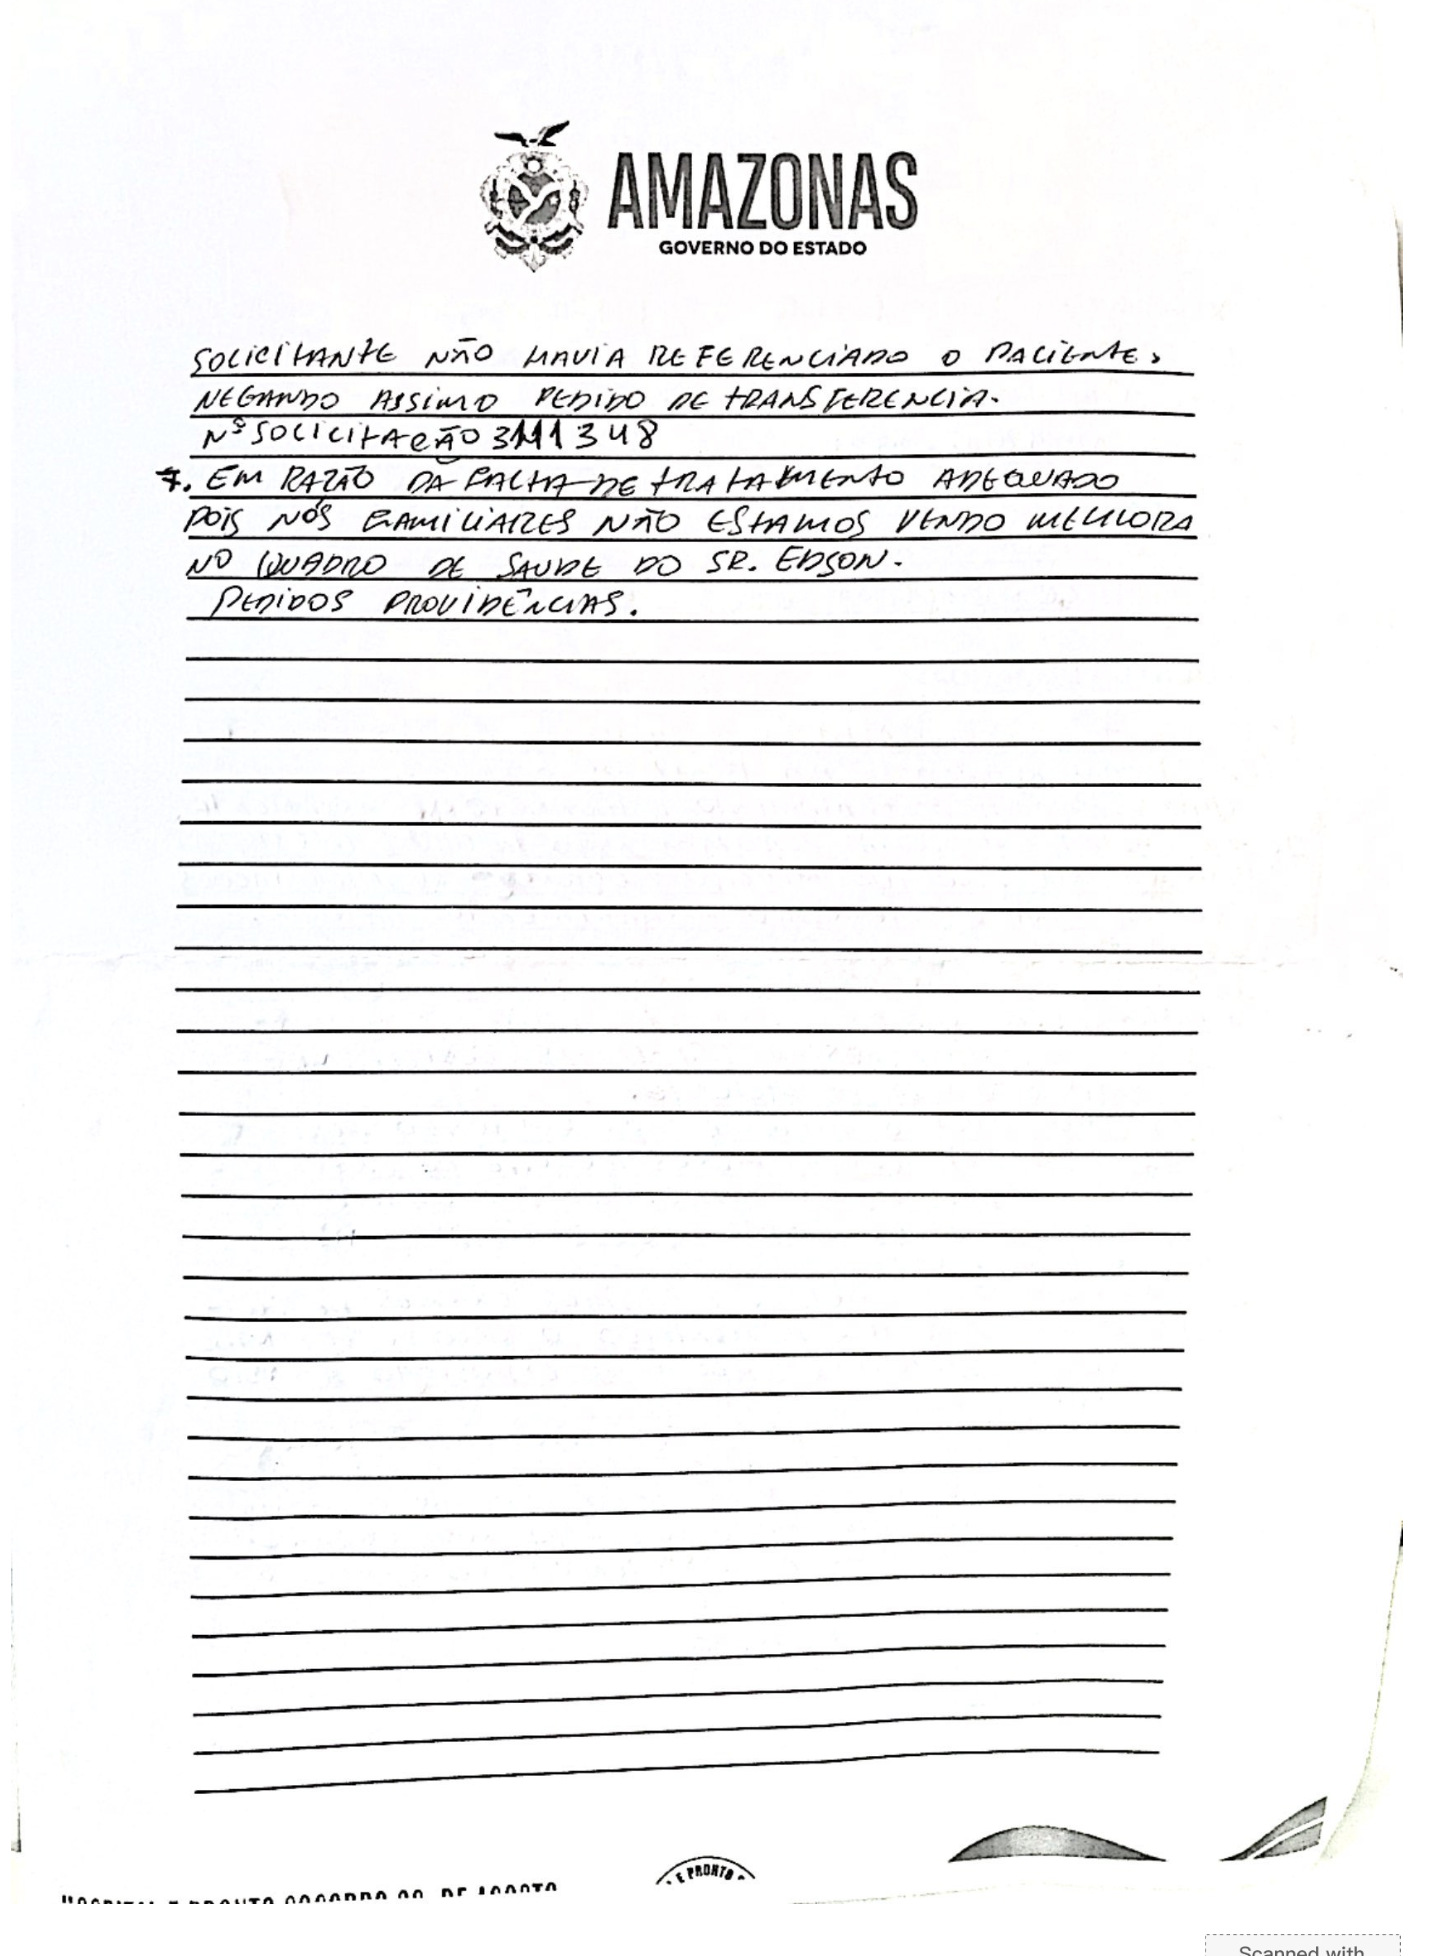 AMAZONAS
GOVERNO DO ESTADO
SOLICITANTE NÃO HAVIA REFERENCIADO O PACIENTE,
NEGANDO ASSIM O PEDIDO DE TRANSFERENCIA.
Nº SOLICITAÇÃO 3111348
7. EM RAZÃO DA FALTA DE TRATAMENTO ADEQUADO
POIS NÓS FAMILIARES NÃO ESTAMOS VENDO MELHORA
NO QUADRO DE SAUDE DO SR. EDSON.
PEDIDOS PROVIDÊNCIAS.
E PRONTO
HOSPITAL E PRONTO SOCORRO 28 DE AGOSTO
Scanned with